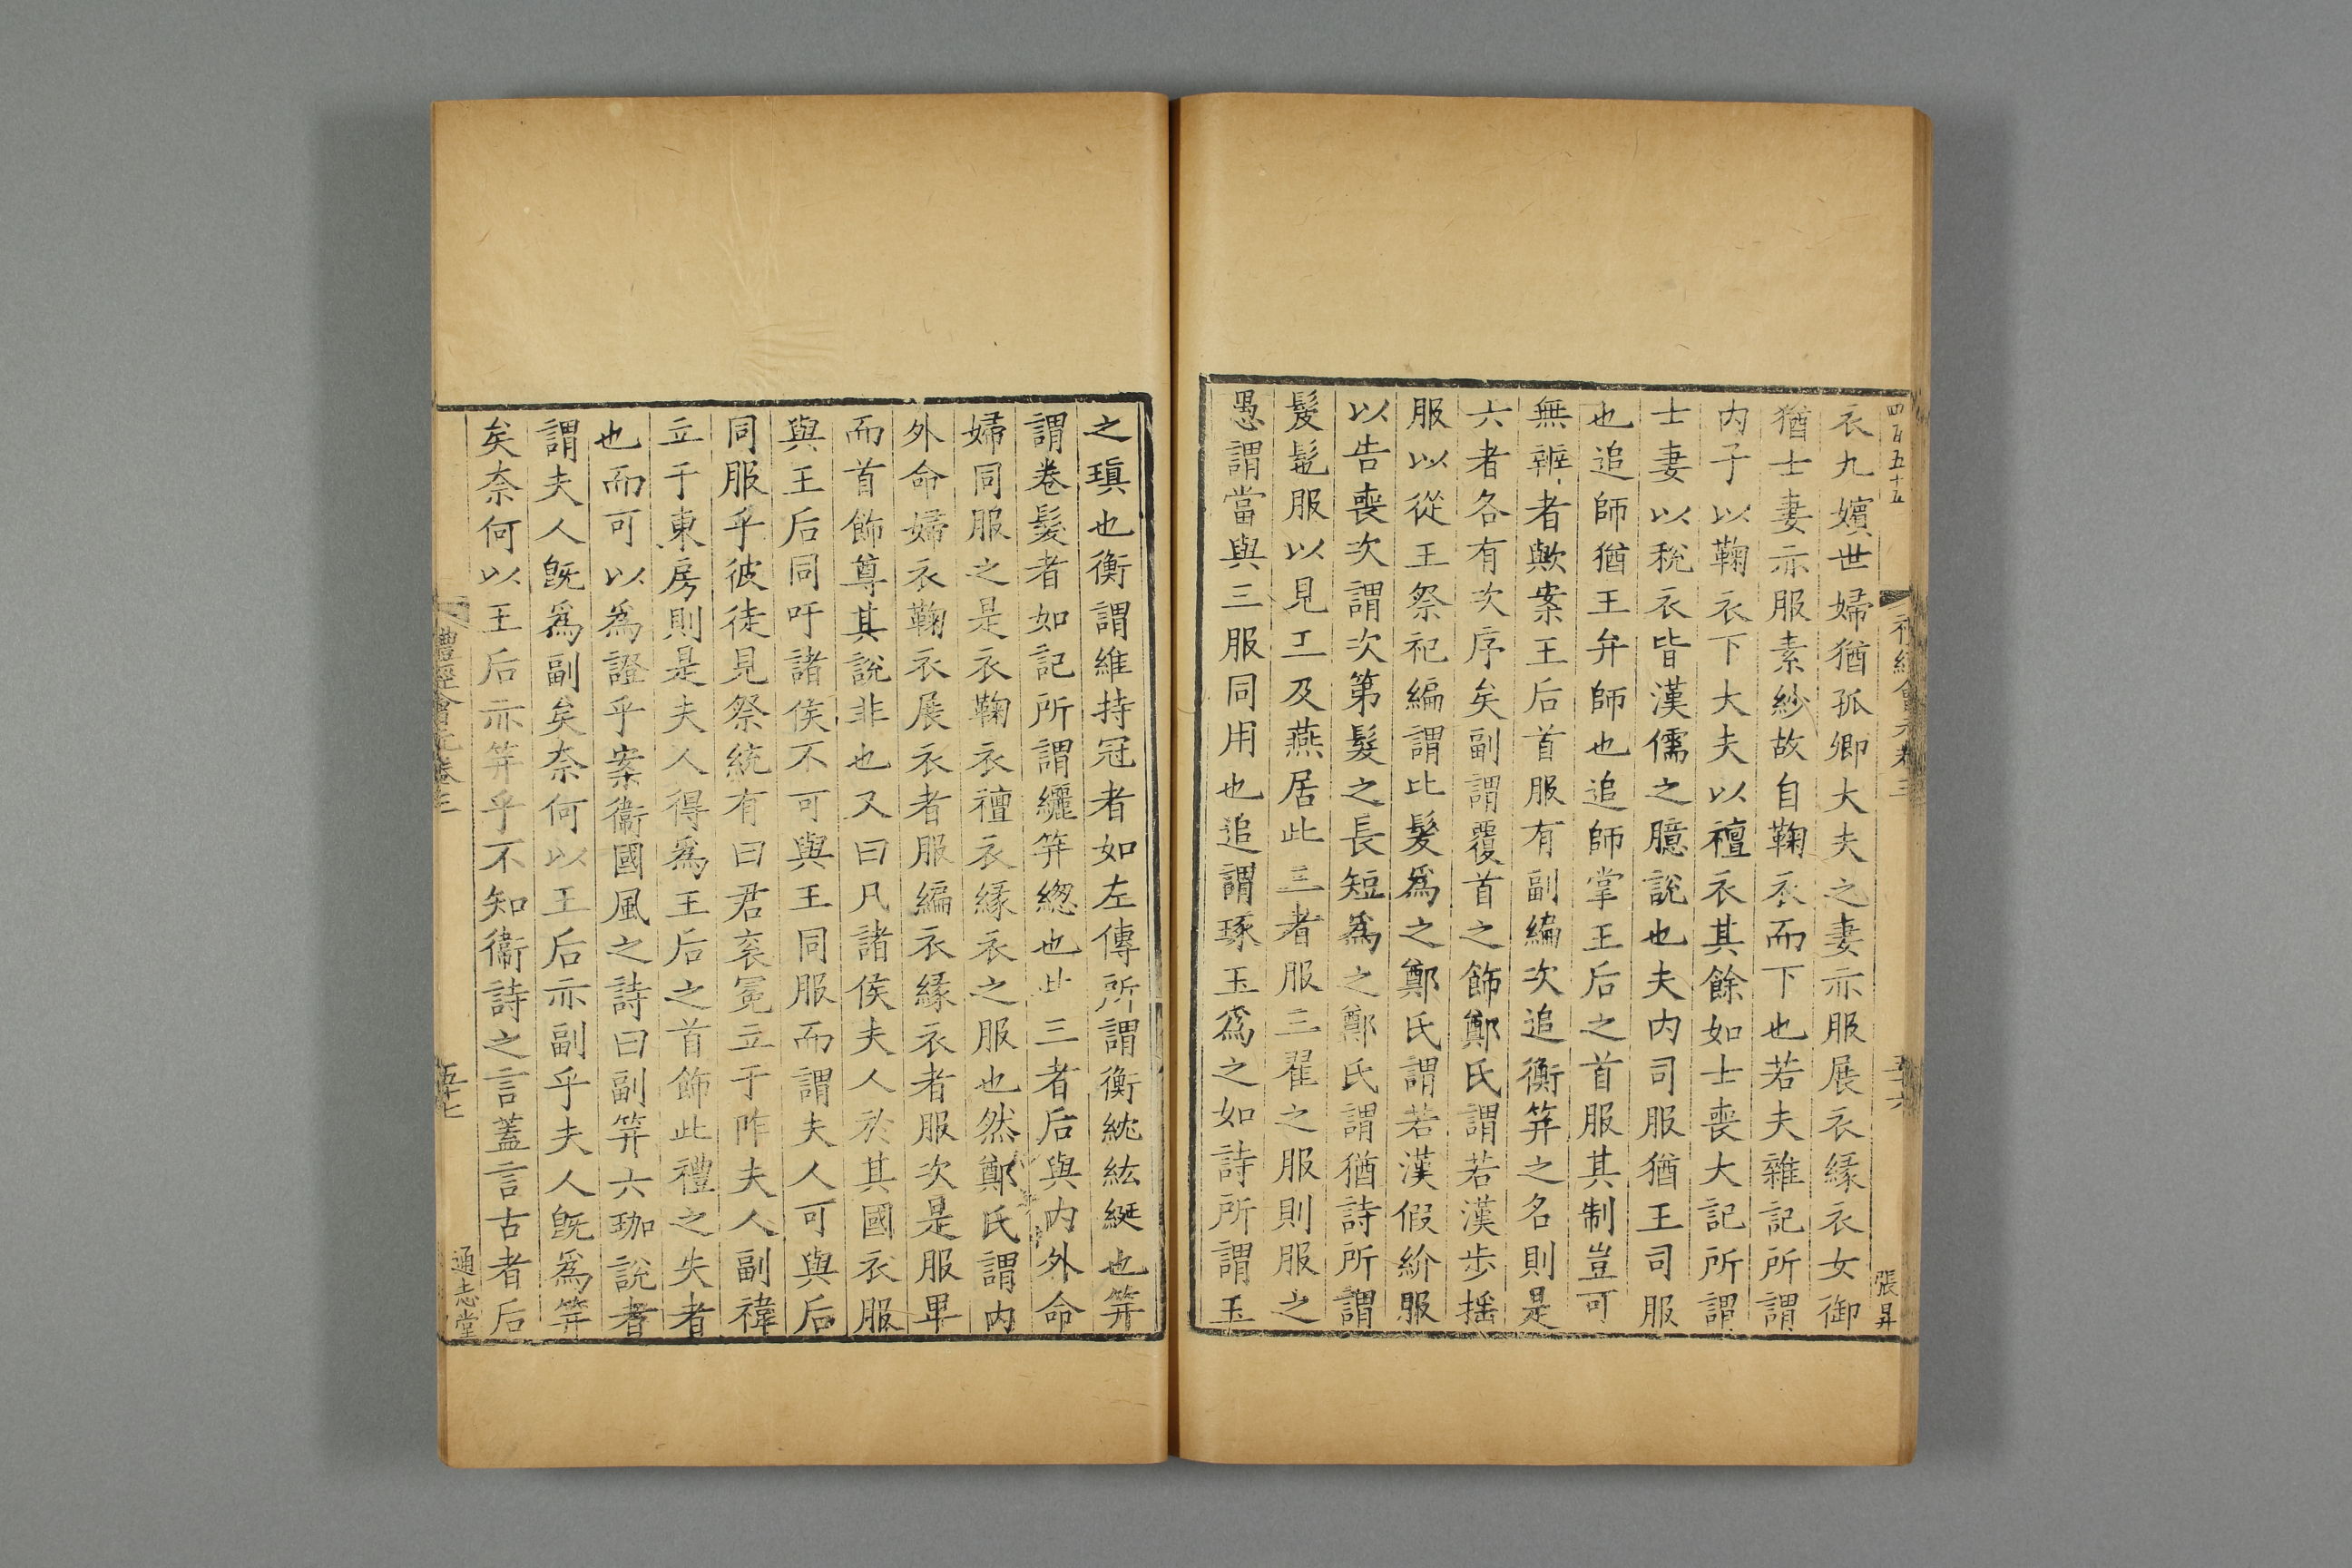 四百五十五
張昇
衣九嬪世婦猶孤卿大夫之妻亦服展衣緣衣女御
猶士妻亦服素紗故自鞠衣而下也若夫雜記所謂
内子以鞠衣下大夫以襢衣其餘如士喪大記所謂
士妻以稅衣皆漢儒之臆說也夫内司服猶王司服
也追師猶王弁師也追師掌王后之首服其制豈可
無辨者歟案王后首服有副編次追衡笄之名則是
六者各有次序矣副謂覆首之飾鄭氏謂若漢步搖
服以從王祭祀編謂比髮爲之鄭氏謂若漢假紒服
以告喪次謂次第髮之長短爲之鄭氏謂猶詩所謂
髲髢服以見工及燕居此三者服三翟之服則服之
愚謂當與三服同用也追謂琢玉爲之如詩所謂玉
之瑱也衡謂維持冠者如左傳所謂衡紞紘綖也笄
謂卷髮者如記所謂纚笄緫也此三者后與内外命
婦同服之是衣鞠衣襢衣緣衣之服也然鄭氏謂内
外命婦衣鞠衣展衣者服編衣緣衣者服次是服卑
而首飾尊其說非也又曰凡諸侯夫人於其國衣服
與王后同吁諸侯不可與王同服而謂夫人可與后
同服乎彼徒見祭統有曰君衮冕立于阼夫人副褘
立于東房則是夫人得爲王后之首飾此禮之失者
也而可以爲證乎案衞國風之詩曰副笄六珈說者
謂夫人旣爲副矣奈何以王后亦副乎夫人旣爲笄
矣奈何以王后亦笄乎不知衞詩之言蓋言古者后
禮經會元卷三
五十七
通志堂